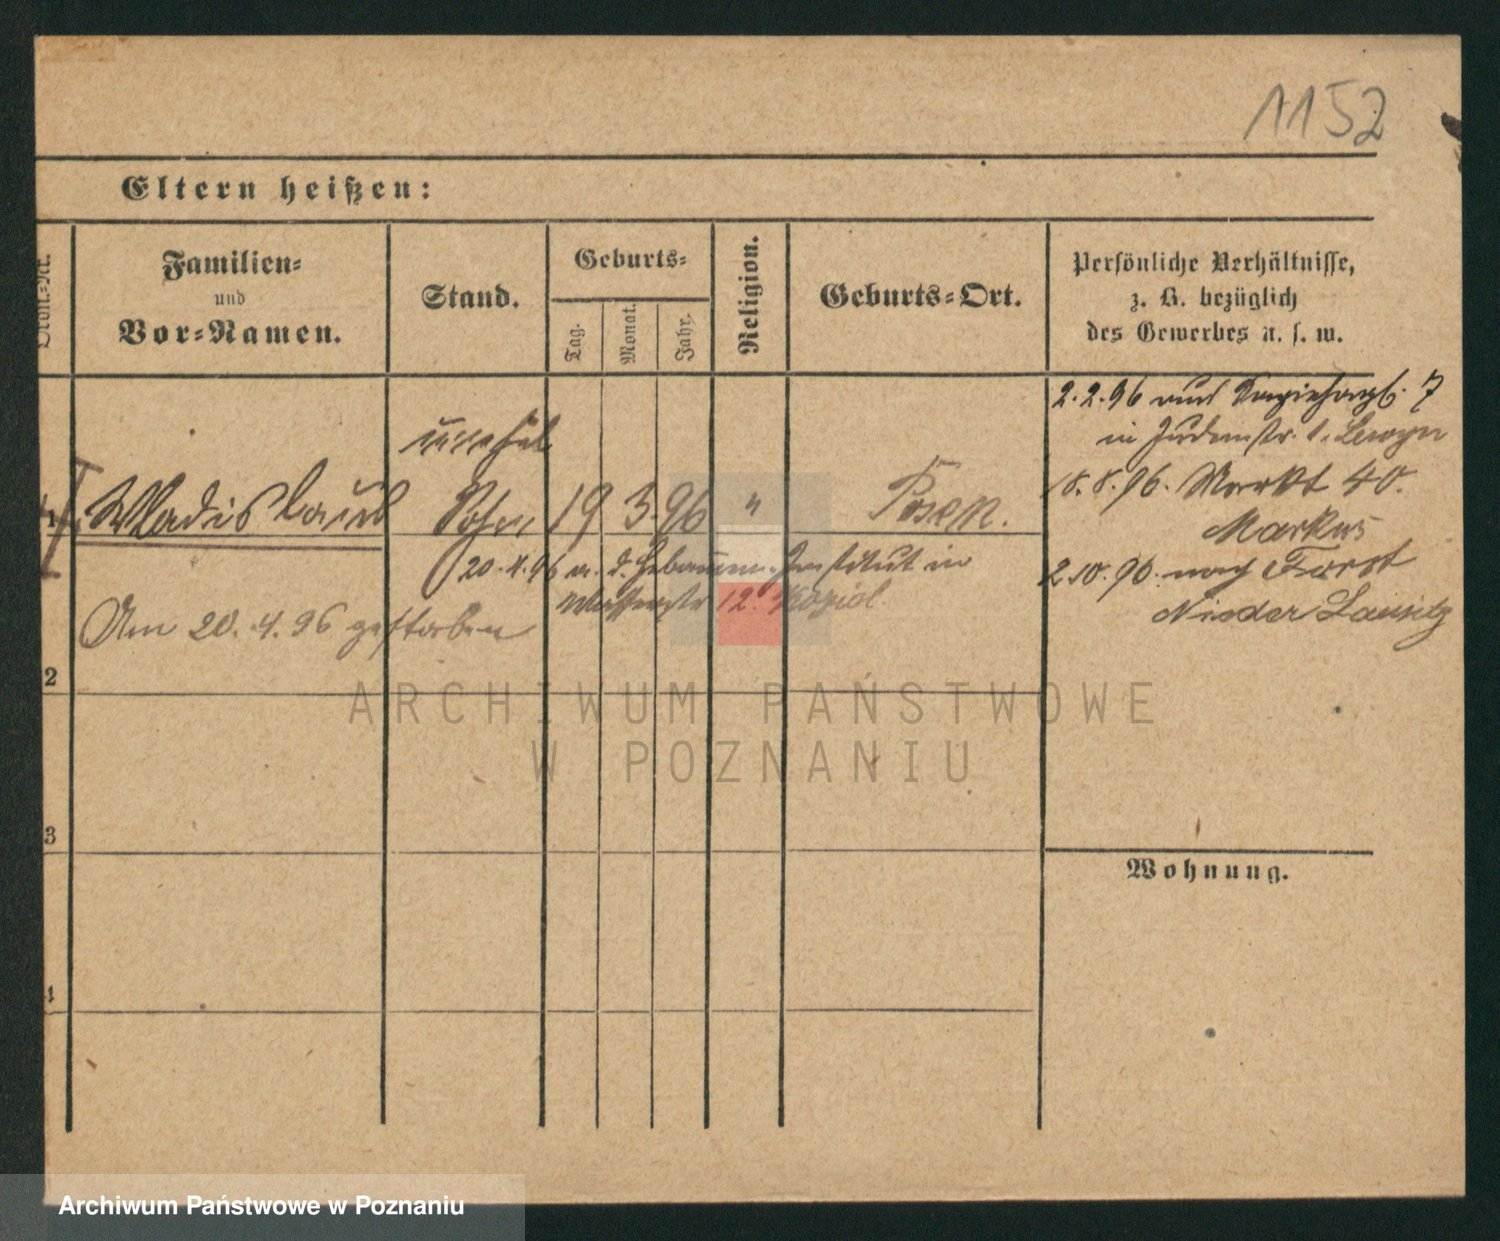 1152
Eltern heißen:
Ordn.-Nr.
Familien-
und
Vor-Namen.
Stand.
Geburts-
Tag.
Monat.
Jahr.
Religion.
Geburts-Ort.
Persönliche Verhältnisse,
z. B. bezüglich
des Gewerbes u. s. w.
2.2.96 7
in Judenstr. 1.
18.8.96. Markt 40.
Markus
2.10.96. nach Forst
Nieder Lausitz
unehel
1 Wladislaus Sohn 19 3. 96 " Posen.
20.4.96 a. d. Hebammen-Institut in
Wasserstr 12. Koziol.
Am 20.4.96 gestorben
2
3
4
Wohnung.
ARCHIWUM PAŃSTWOWE
W POZNANIU
Archiwum Państwowe w Poznaniu